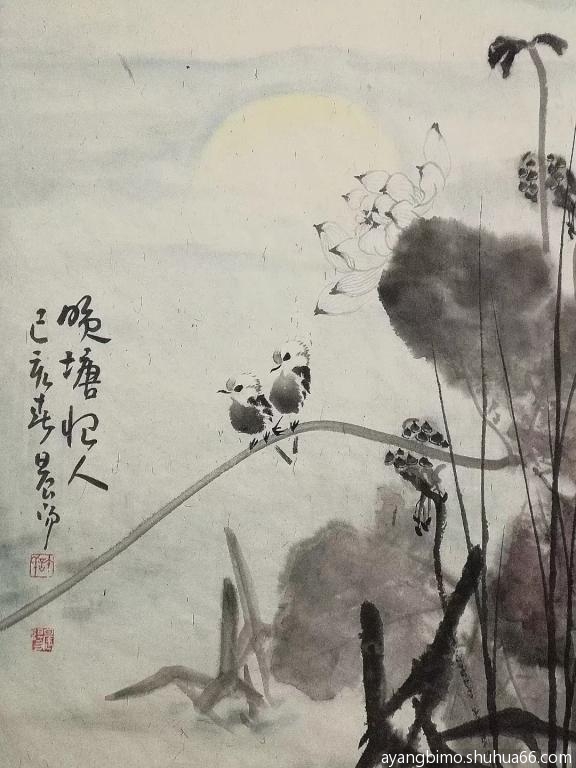 晚塘归人
己亥春晨
ayangbimo.shuhua66.com